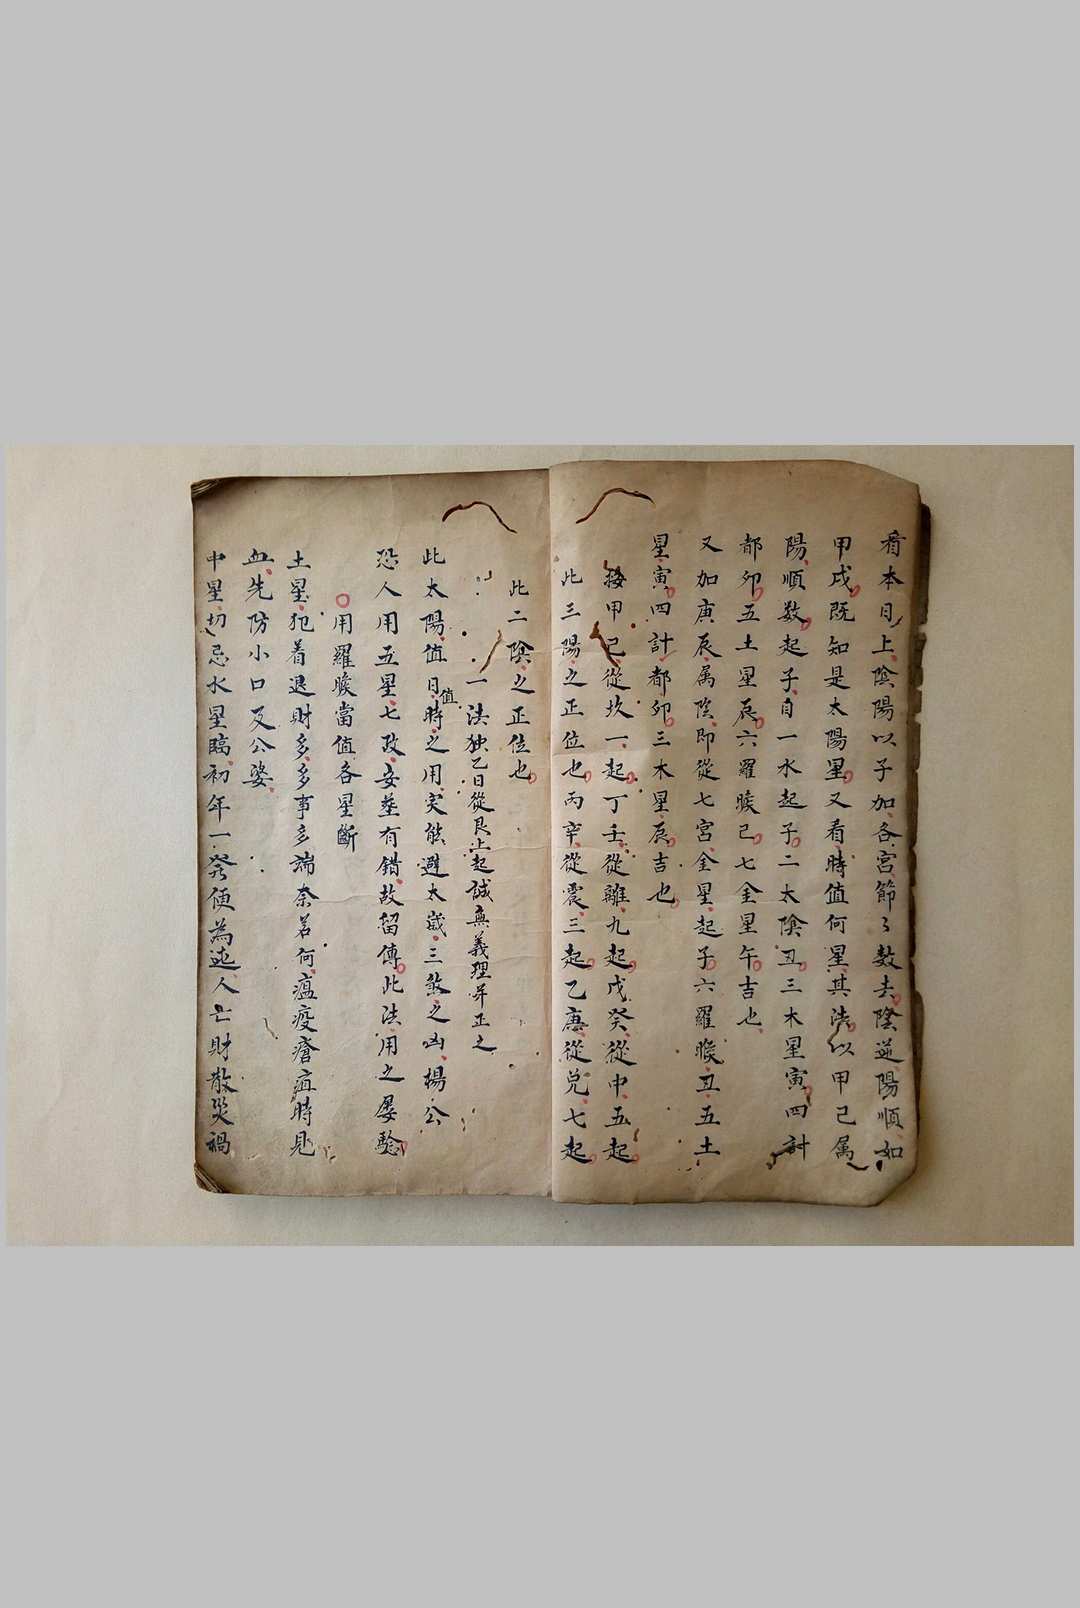 看本日上陰陽以子加各宮節々数去陰逆陽順如
甲戌既知是太陽星又看時值何星其法以甲己属
陽順数起子自一水起子二太陰丑三木星寅四計
都卯五土星辰六羅睺巳七金星午吉也
又加庚辰属陰即從七宮金星起子六羅睺丑五土
星寅四計都卯三木星辰吉也
按甲己從坎一起丁壬從離九起戊癸從中五起
此三陽之正位也丙辛從震三起乙庚從兌七起
此二陰之正位也
一法独乙日從艮上起誠無義理并正之
此太陽值日值時之用实能避太歲三煞之凶楊公
恐人用五星七政安塟有錯故留傳此法用之屡驗
用羅睺當值各星斷
土星犯着退財多多事多端奈若何瘟疫瘡疽時見
血先防小口及公婆
中星切忌水星臨初年一發便為迍人亡財散災禍